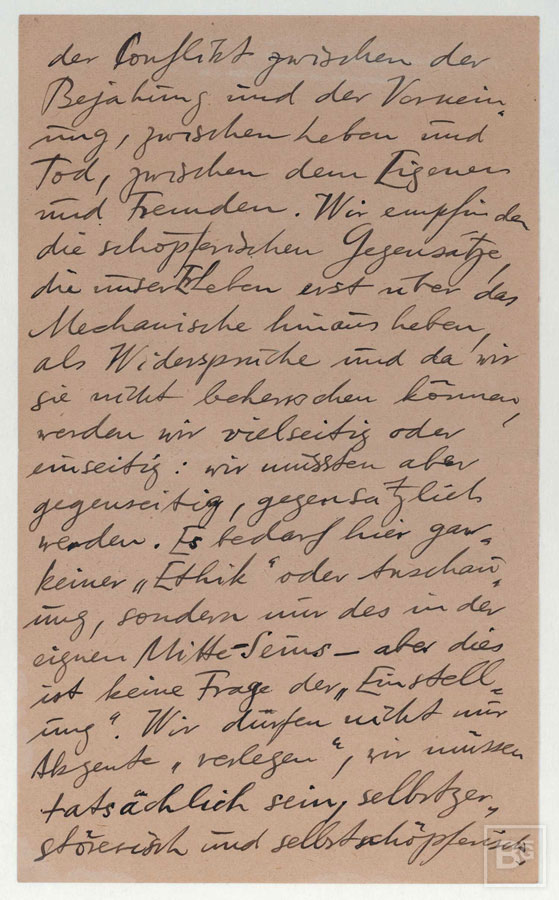 der Conflikt zwischen der
Bejahung und der Vernein-
ung, zwischen Leben und
Tod, zwischen dem Eigenen
und Fremden. Wir empfinden
die schöpferischen Gegensätze,
die unser Erleben erst über das
Mechanische hinaus heben,
als Widersprüche und da wir
sie nicht beherrschen können,
werden wir vielseitig oder
einseitig: wir müssten aber
gegenseitig, gegensätzlich
werden. Es bedarf hier gar
keiner „Ethik“ oder Anschau-
ung, sondern nur des in der
eignen Mitte-Seins – aber dies
ist keine Frage der „Einstell-
ung“. Wir dürfen nicht nur
Akzente „verlegen“, wir müssen
tatsächlich sein, selbstzer-
störerisch und selbstschöpferisch,